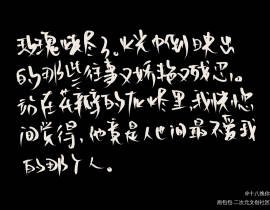 玫瑰烧尽了。火光中倒映出
的那些往事又娇艳又残忍。
站在花瓣的灰烬里,我恍惚
间觉得,他竟是人世间最不爱我
的那个人。
@十八晚你
画包包·二次元文创社区